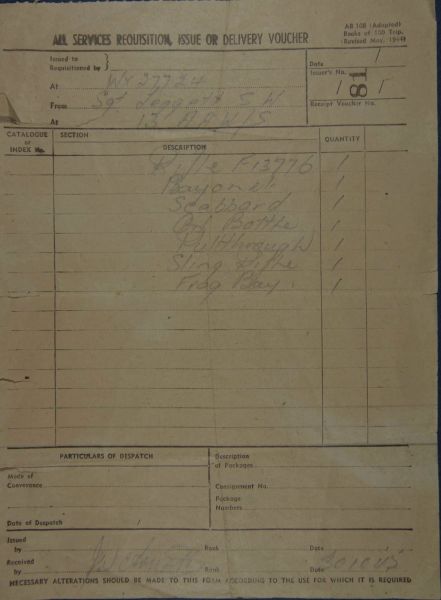 AB 108 (Adapted)
Books of 100 Trip.
(Revised May, 1944)
ALL SERVICES REQUISITION, ISSUE OR DELIVERY VOUCHER
Issued to
Requisitioned by }
Date /
At WX27724
Issuer's No. / 81 /
From Sgt Leggett S W
Receipt Voucher No.
At 13
CATALOGUE or INDEX No. SECTION DESCRIPTION QUANTITY
Rifle F13776 1
Bayonet 1
Scabbard 1
Oil Bottle 1
Pullthrough 1
Sling Rifle 1
Frog Bay. 1
PARTICULARS OF DESPATCH
Description of Packages
Mode of Conveyance
Consignment No.
Package Numbers
Date of Despatch /
Issued by Rank Date
Received by Rank Date 301045
NECESSARY ALTERATIONS SHOULD BE MADE TO THIS FORM ACCORDING TO THE USE FOR WHICH IT IS REQUIRED